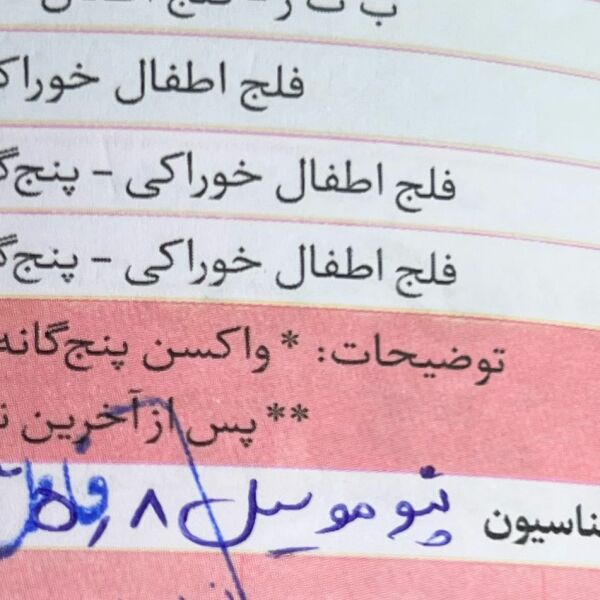 ب ث ژ - فلج اطفال
فلج اطفال خوراک
فلج اطفال خوراکی - پنج‌گ
فلج اطفال خوراکی - پنج‌گ
توضیحات: * واکسن پنج‌گانه
** پس از آخرین ن
ناسیون پنوموسل ۸